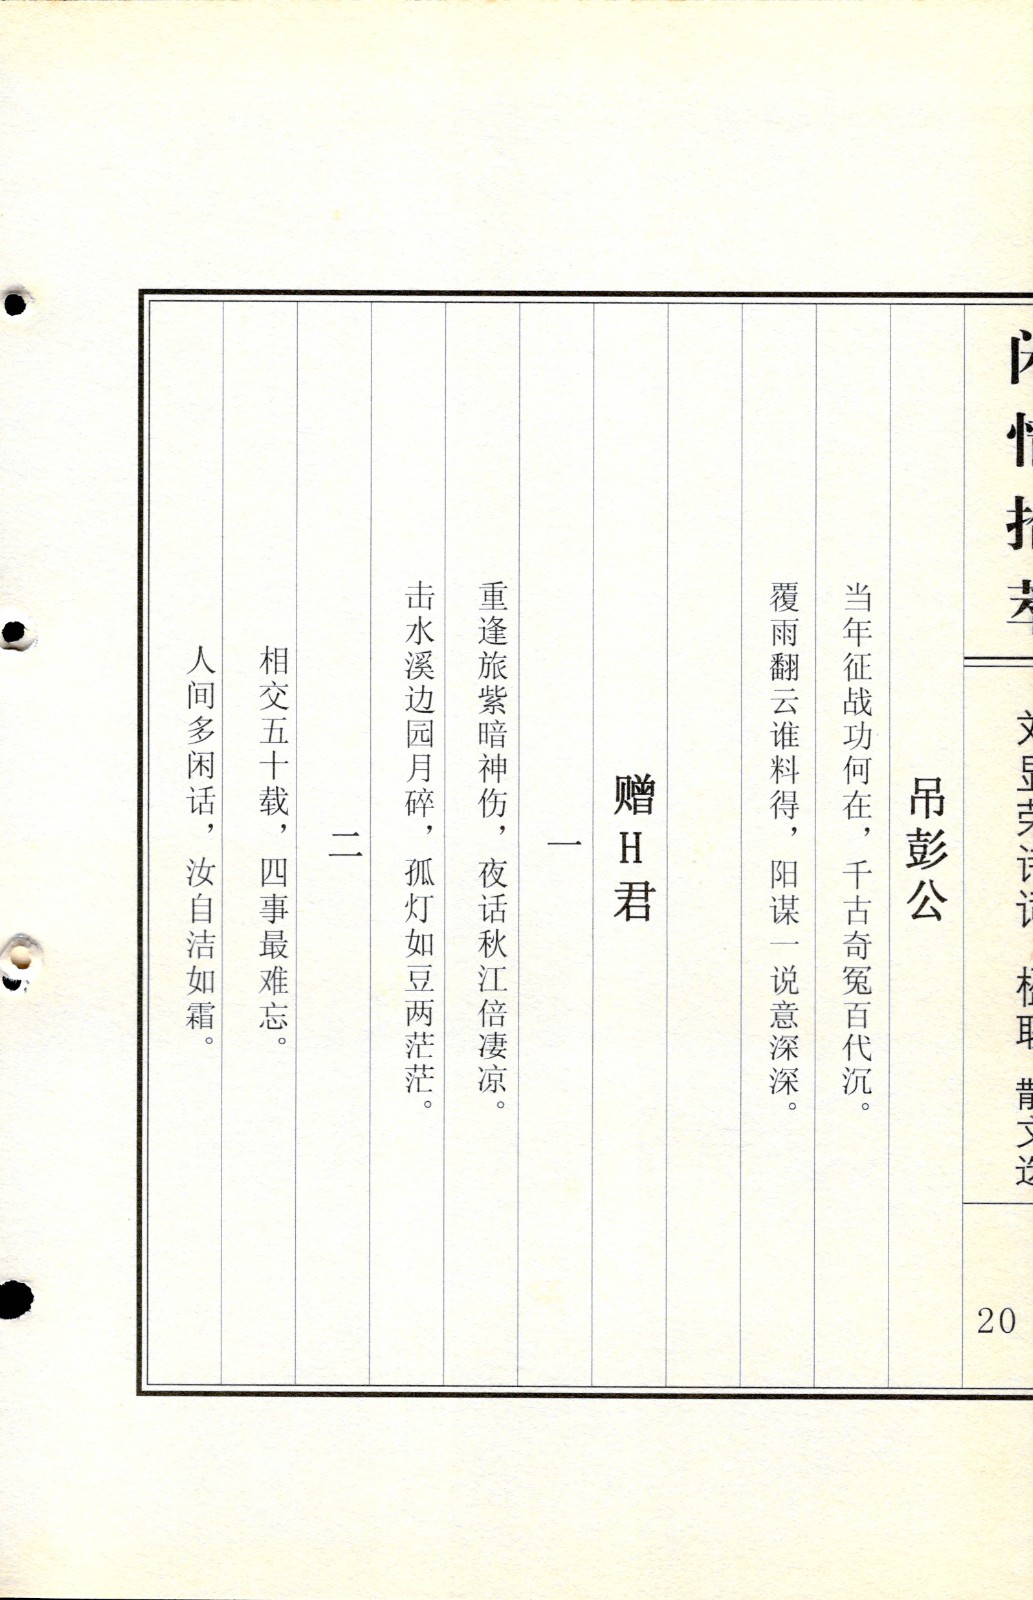 闲情拾萃
刘显荣诗词 楹联 散文选
20
吊彭公
当年征战功何在，千古奇冤百代沉。
覆雨翻云谁料得，阳谋一说意深深。
赠H君
一
重逢旅紫暗神伤，夜话秋江倍凄凉。
击水溪边园月碎，孤灯如豆两茫茫。
二
相交五十载，四事最难忘。
人间多闲话，汝自洁如霜。